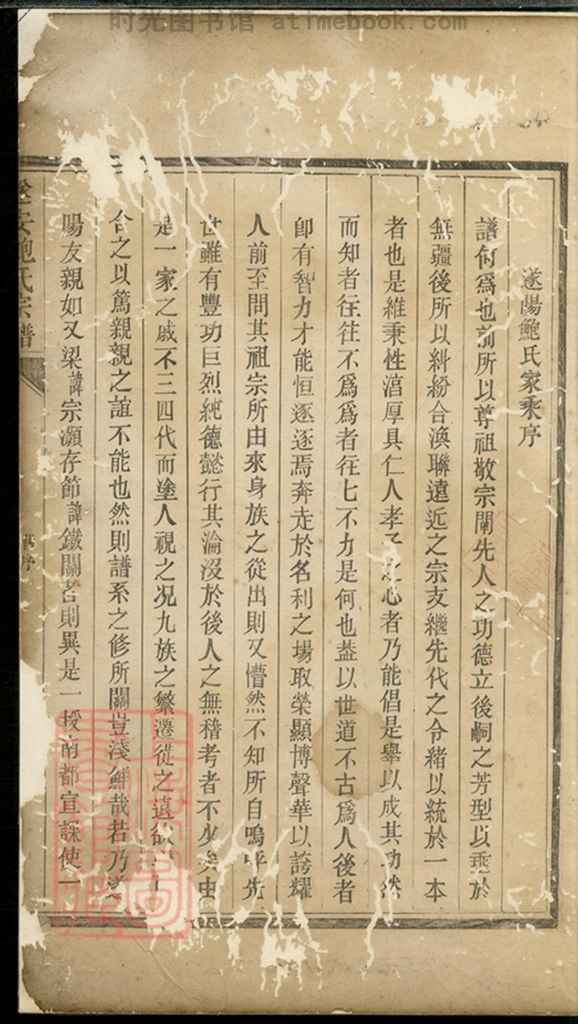 时光图书馆 atimebook.com
遂陽鮑氏家乘序
譜何為也前所以尊祖敬宗闡先人之功德立後嗣之芳型以垂於
無疆後所以糾紛合渙聯遠近之宗支繼先代之令緒以統於一本
者也是維秉性湻厚具仁人孝子之心者乃能倡是舉以成其功然
而知者往往不為為者往七不力是何也葢以世道不古為人後者
卽有智力才能恒逐逐焉奔走於名利之場取榮顯博聲華以誇耀
人前至問其祖宗所由來身族之從出則又懵然不知所自嗚呼先
世雖有豐功巨烈純德懿行其淪沒於後人之無稽考者不少矣由
是一家之戚不三四代而塗人視之况九族之繁遷徙之遠欲
合之以篤親親之誼不能也然則譜系之修所關豈淺鮮哉若乃
陽友親如又梁諱宗灝存節諱鐵關者則異是一授南都宣課使一
遂安鮑氏宗譜
序